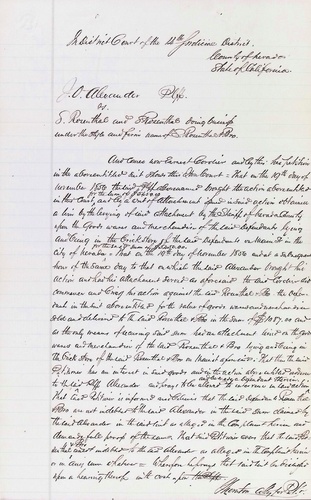 In District Court of the 14th Judicial District
County of Nevada
State of California
J. O. Alexander Plff.
vs.
S. Rosenthal and Rosenthal doing business
under the style and firm name of S Rosenthal & Bro.
And comes now Ernest Cordier and by this his petition
in the above entitled suit shows this Hon Court: That on the 19th day of
November 1856 the said Plff abovenamed brought the action above entitled
in this Court, and by a writ of Attachment issued in said action obtained
a lien by the levying of said attachment by the Sheriff of Nevada County
upon the Goods wares and merchandise of the said defendants lying
and being in the Brick Store of the said Defendants on
city of Nevada. That on the 19th day of November 1856 and at a subsequent
hour of the same day to that on which the said Alexander brought his
action and had his attachment served as aforesaid the said Cordier did
commence and bring his action against the said Rosenthal & Bro the defendants
in the above entitled for the value of goods wares and merchandise
sold and delivered to the said Rosenthal & Bro in the sum of $1087.00 and
as the only means of securing said sum had an attachment levied on the goods
wares and merchandise of the said Rosenthal & Bro lying and being in
the Brick Store of the said Rosenthal & Bro on aforesaid. That this the said
Petitioner has an interest in said goods and in the action
to the said Plff Alexander and prays to be
That your Petitioner is informed and believes that the defendants Rosenthal
& Bro are not indebted to the said Alexander in the said sum claimed by
the said Alexander in the said suit as alleged in the Complaint herein and
demands full proof of the same. That said Petitioner avers that the said
are not indebted to the said Alexander as alleged in the Complaint herein
or in any sum whatever. Wherefore he prays that said suit be dismissed
upon a hearing